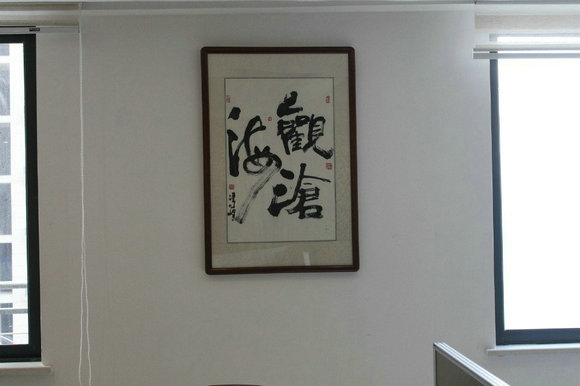 觀滄
海